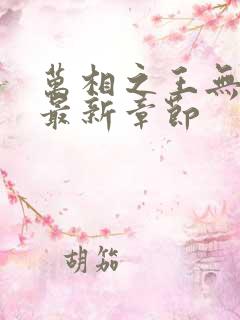 萬相之王無
最新章節
胡笳